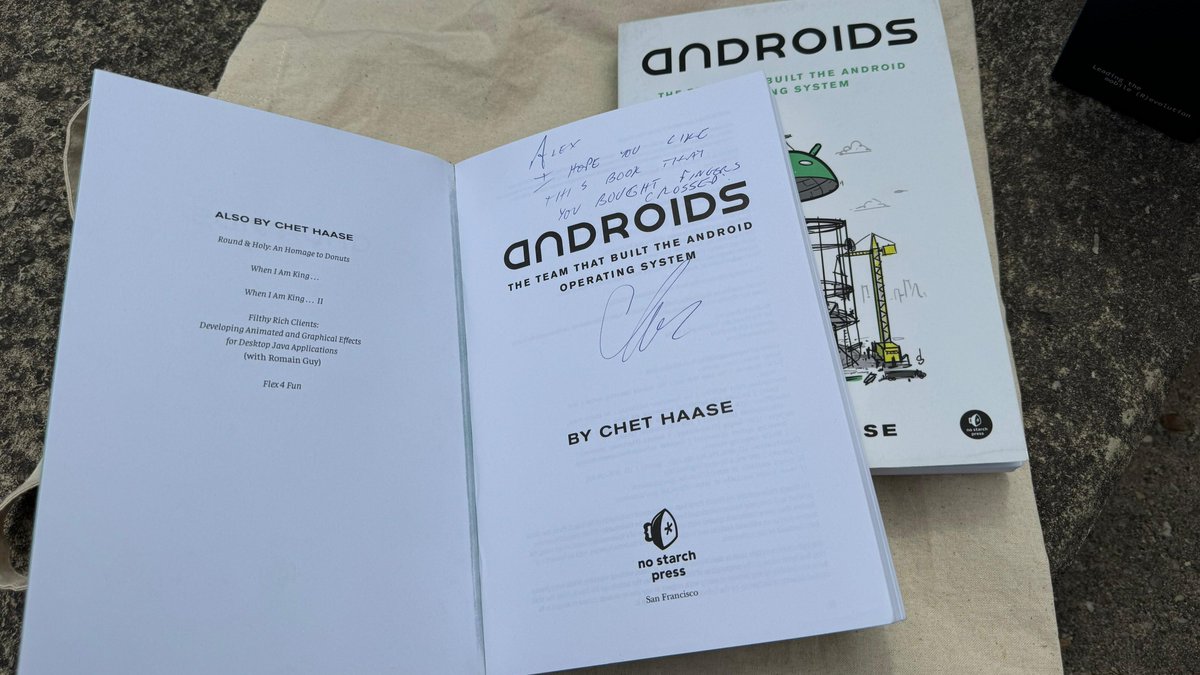 ALSO BY CHET HAASE
Round & Holy: An Homage to Donuts
When I Am King . . .
When I Am King . . . II
Filthy Rich Clients:
Developing Animated and Graphical Effects
for Desktop Java Applications
(with Romain Guy)
Flex 4 Fun
ALEX
I HOPE YOU LIKE
THIS BOOK THAT
YOU BOUGHT FINGERS
CROSSED.
ANDROIDS
THE TEAM THAT BUILT THE ANDROID
OPERATING SYSTEM
BY CHET HAASE
no starch
press
San Francisco
ANDROIDS
BUILT THE ANDROID
SYSTEM
SE
no starch
press
Leading the
Mobile (R)evolution